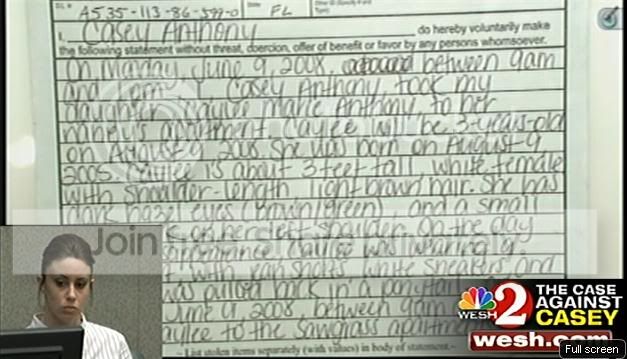 A535-113-86-599-0 FL
I, Casey Anthony, do hereby voluntarily make
the following statement without threat, coercion, offer of benefit or favor by any persons whomsoever.
On Monday, June 9, 2008, between 9am
and 1pm, I, Casey Anthony, took my
daughter, Caylee Marie Anthony, to her
nanny's apartment. Caylee will be 3-years-old
on August 9, 2008. She was born on August 9,
2005. Caylee is about 3 feet tall, white female
with shoulder-length light brown hair. She has
dark hazel eyes (brown/green) and a small
on her left shoulder. On the day
Caylee was wearing a
with jean shorts, white sneakers and
was pulled back in a ponytail.
June 9, 2008, between 9am
Caylee to the Sawgrass apartments
List stolen items separately (with values) in body of statement.
Join
WESH 2
THE CASE
AGAINST
CASEY
wesh.com
Full screen